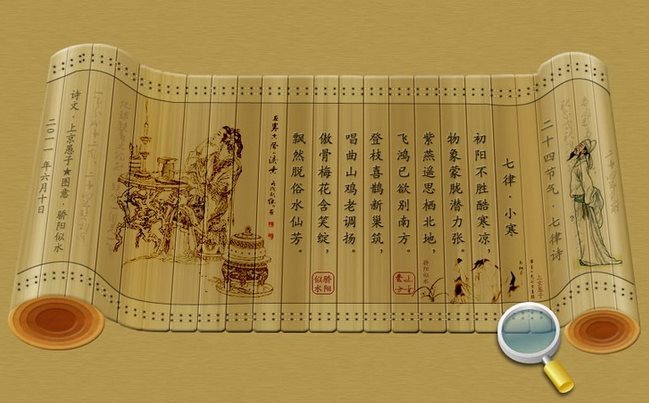 二十四节气·七律诗
七律·小寒
初阳不胜酷寒凉，
物象蒙胧潜力张。
紫燕遥思栖北地，
飞鸿已欲别南方。
登枝喜鹊新巢筑，
唱曲山鸡老调扬。
傲骨梅花含笑绽，
飘然脱俗水仙芳。
骄阳似水
骄阳似水
诗文·上京愚子★图意·骄阳似水
二〇一一年六月十日